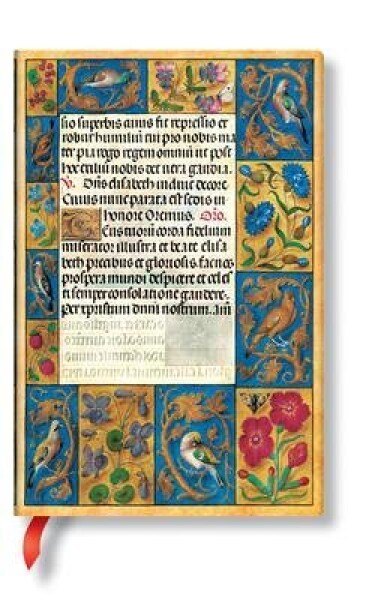 sio superbis cuius fit repressio et
robur humilium cui pro nobis ma
ter pia rogo regem omnium ut post
hoc exilium nobis det vera gaudia.
V. Dns elisabeth induit decore
Cuius nunc parata est sedis in
honore Oremus. Oro.
Tuorum corda fidelium
miserator illustra et beate elisa
beth precibus et gloriosis. fac nos
prospera mundi despicere et celes
ti semper consolatione gaudere.
Per xpristum dnm nostrum. am